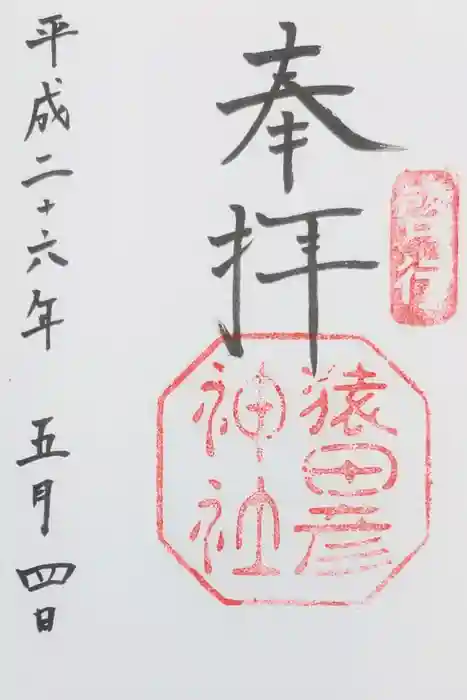 啓行
奉拝
猿田彦
神社
平成二十六年 五月四日